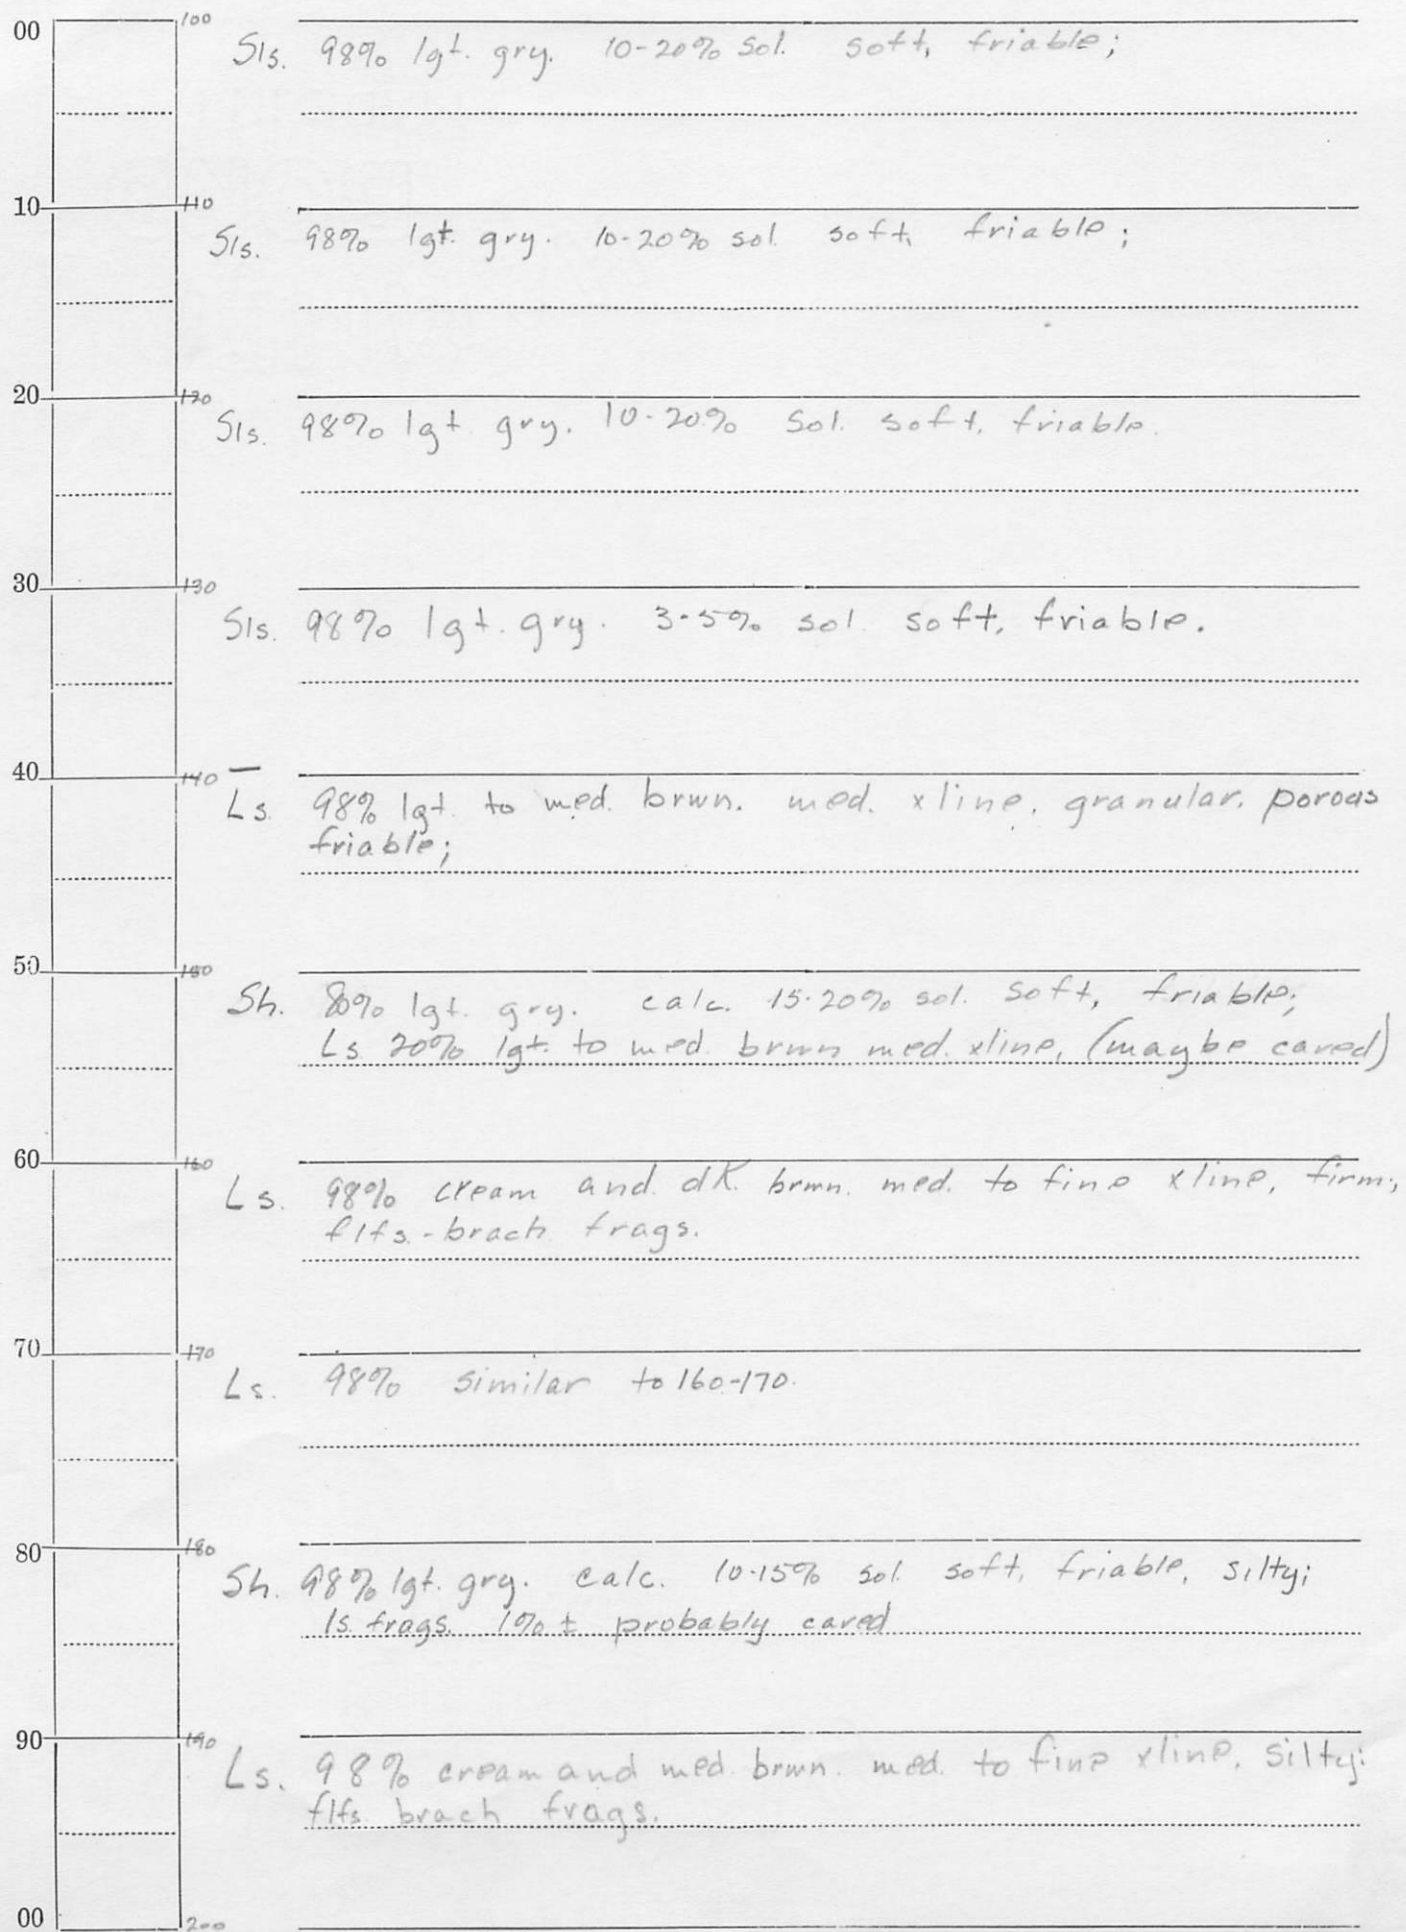 00 100
Sls. 98% lgt. gry. 10-20% sol. soft, friable;
10 110
Sls. 98% lgt. gry. 10-20% sol. soft, friable;
20 120
Sls. 98% lgt gry. 10-20% sol. soft, friable.
30 130
Sls. 98% lgt. gry. 3-5% sol. soft, friable.
40 140
Ls. 98% lgt. to med. brwn. med. xline, granular, porous
friable;
50 150
Sh. 80% lgt. gry. calc. 15-20% sol. soft, friable;
Ls 20% lgt. to med. brwn med. xline, (maybe caved)
60 160
Ls. 98% cream and dk. brwn. med. to fine xline, firm;
flfs.-brach frags.
70 170
Ls. 98% similar to 160-170.
80 180
Sh. 98% lgt. gry. calc. 10-15% sol. soft, friable, silty;
ls. frags. 1% ± probably caved
90 190
Ls. 98% cream and med. brwn. med. to fine xline, silty;
flfs. brach frags.
00 200